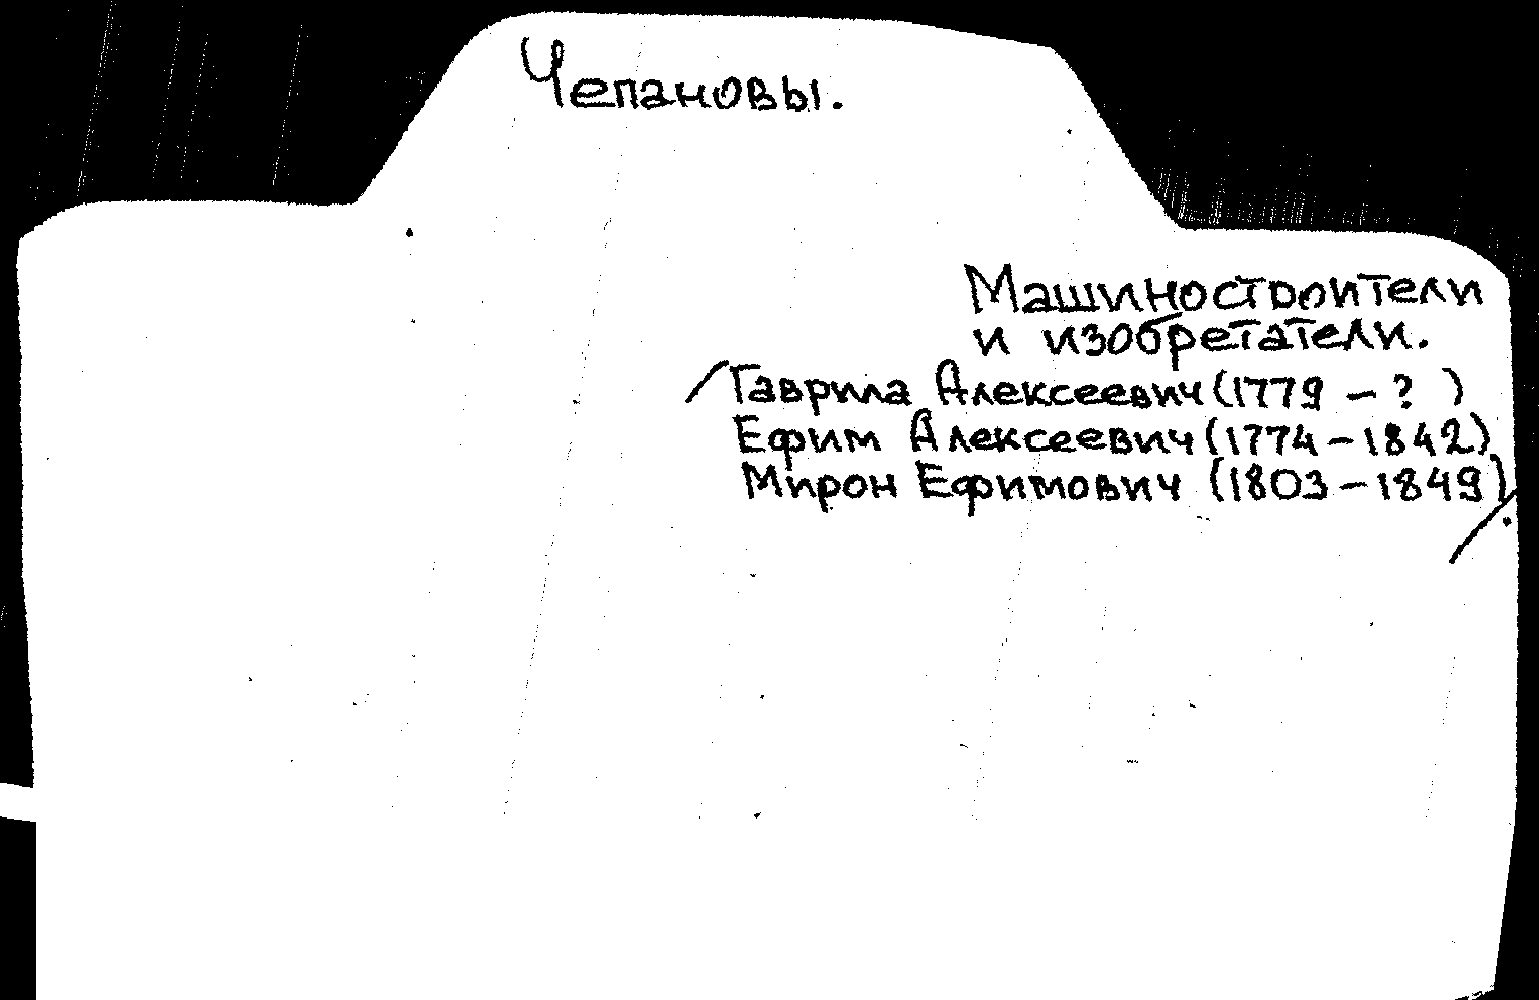 Чепановы.
Машиностроители
и изобретатели.
/Гаврила Алексеевич (1779 – ? )
Ефим Алексеевич (1774 – 1842)
Мирон Ефимович (1803 – 1849)/.